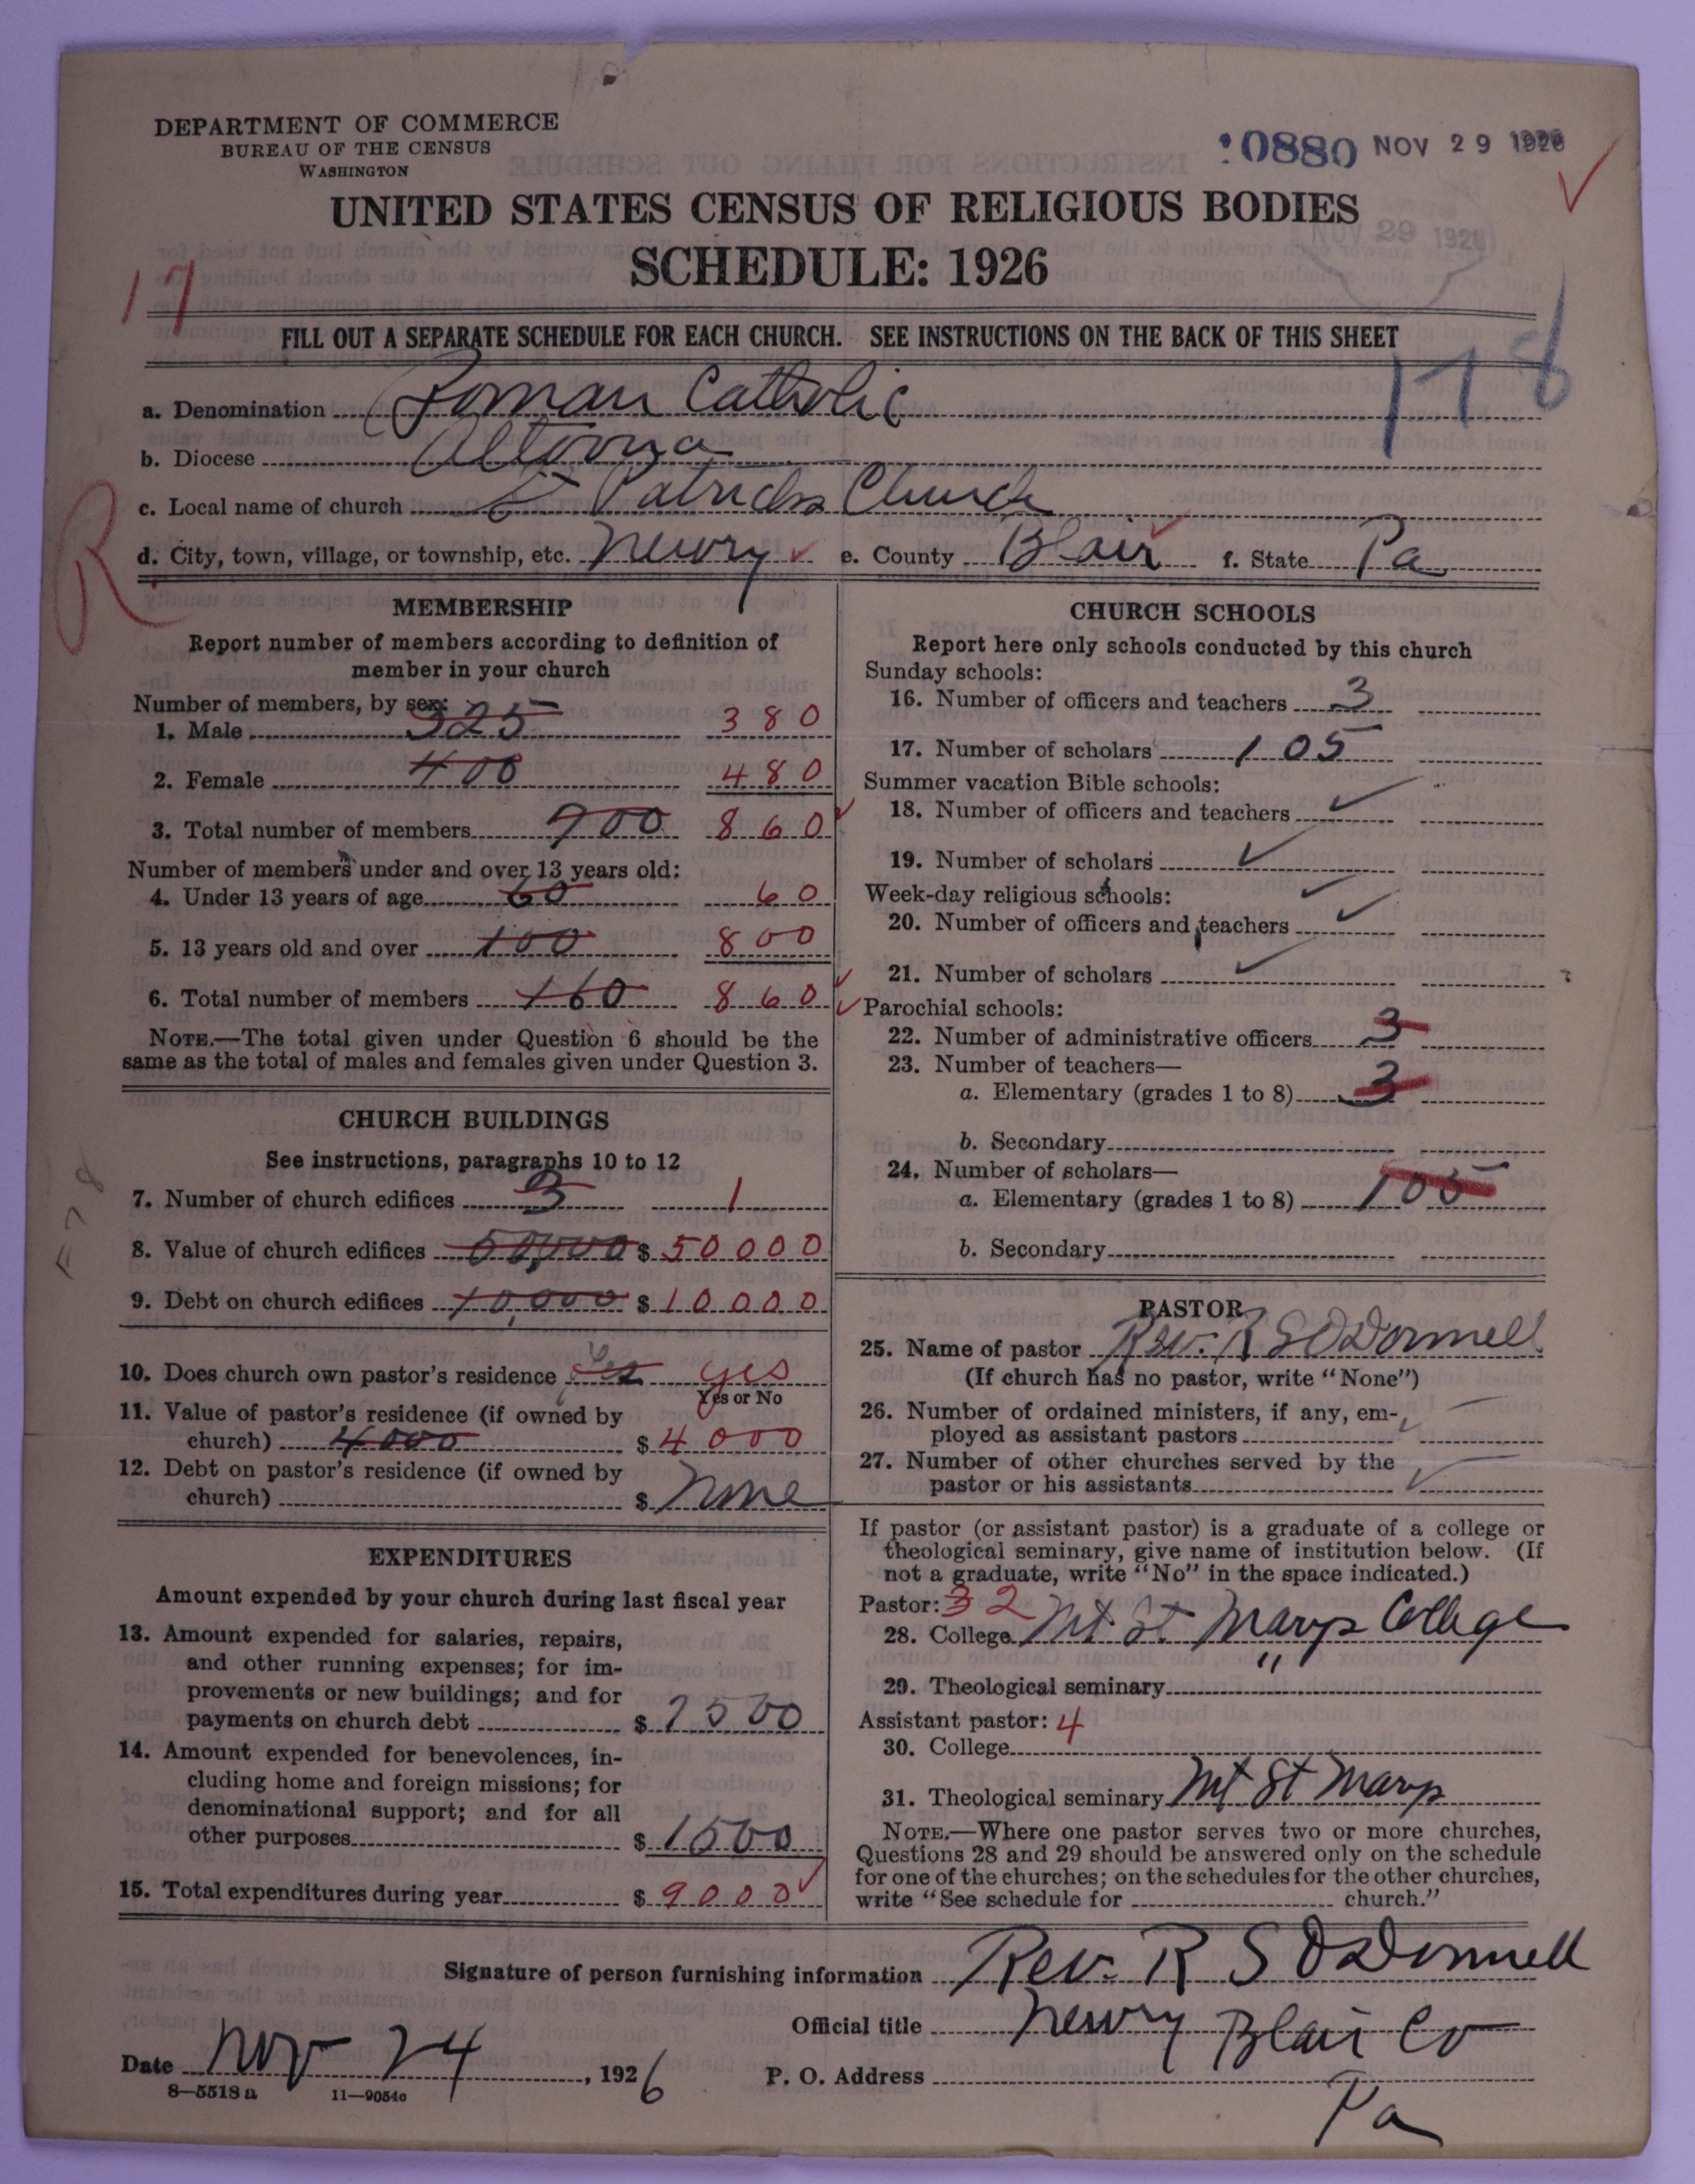 DEPARTMENT OF COMMERCE
BUREAU OF THE CENSUS
WASHINGTON
0880 NOV 29 1926
UNITED STATES CENSUS OF RELIGIOUS BODIES
NOV 29 1926
SCHEDULE: 1926
17
FILL OUT A SEPARATE SCHEDULE FOR EACH CHURCH. SEE INSTRUCTIONS ON THE BACK OF THIS SHEET
178
a. Denomination Roman Catholic
b. Diocese Altoona
c. Local name of church St Patricks Church
R
d. City, town, village, or township, etc. Newry e. County Blair f. State Pa
MEMBERSHIP
Report number of members according to definition of
member in your church
Number of members, by sex:
1. Male 325 380
2. Female 400 480
3. Total number of members 700 860
Number of members under and over 13 years old:
4. Under 13 years of age 60 60
5. 13 years old and over 100 800
6. Total number of members 160 860
NOTE.—The total given under Question 6 should be the
same as the total of males and females given under Question 3.
CHURCH BUILDINGS
See instructions, paragraphs 10 to 12
7. Number of church edifices 3 1
8. Value of church edifices 50,000 $ 50000
9. Debt on church edifices 10,000 $ 10000
10. Does church own pastor's residence Yes yes
Yes or No
11. Value of pastor's residence (if owned by
church) 4000 $ 4000
12. Debt on pastor's residence (if owned by
church) $ None
EXPENDITURES
Amount expended by your church during last fiscal year
13. Amount expended for salaries, repairs,
and other running expenses; for im-
provements or new buildings; and for
payments on church debt $ 7500
14. Amount expended for benevolences, in-
cluding home and foreign missions; for
denominational support; and for all
other purposes $ 1500
15. Total expenditures during year $ 9000
CHURCH SCHOOLS
Report here only schools conducted by this church
Sunday schools:
16. Number of officers and teachers 3
17. Number of scholars 105
Summer vacation Bible schools:
18. Number of officers and teachers
19. Number of scholars
Week-day religious schools:
20. Number of officers and teachers
21. Number of scholars
Parochial schools:
22. Number of administrative officers 3
23. Number of teachers—
a. Elementary (grades 1 to 8) 3
b. Secondary
24. Number of scholars—
a. Elementary (grades 1 to 8) 105
b. Secondary
PASTOR
25. Name of pastor Rev. R S O'Donnell
(If church has no pastor, write "None")
26. Number of ordained ministers, if any, em-
ployed as assistant pastors
27. Number of other churches served by the
pastor or his assistants
If pastor (or assistant pastor) is a graduate of a college or
theological seminary, give name of institution below. (If
not a graduate, write "No" in the space indicated.)
Pastor: 32
28. College Mt St Marys College
29. Theological seminary "
Assistant pastor: 4
30. College
31. Theological seminary Mt St Marys
NOTE.—Where one pastor serves two or more churches,
Questions 28 and 29 should be answered only on the schedule
for one of the churches; on the schedules for the other churches,
write "See schedule for church."
Signature of person furnishing information Rev. R S O'Donnell
Official title Newry Blair Co
Date Nov 24, 1926 P. O. Address Pa
8—5518 a 11—9054c